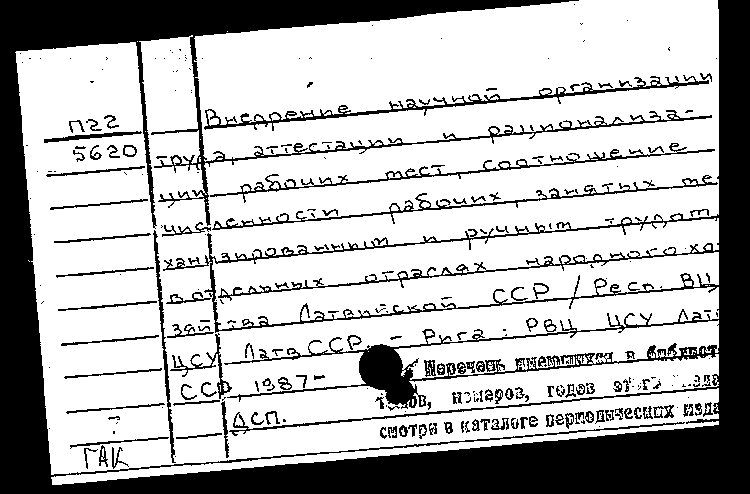 П22
5620
Внедрение научной организации
труда, аттестации и рационализа-
ции рабочих мест, соотношение
численности рабочих, занятых ме-
ханизированным и ручным трудом,
в отдельных отраслях народного хо-
зяйства Латвийской ССР / Респ. ВЦ
ЦСУ ЛатвССР. – Рига : РВЦ ЦСУ Латв
ССР, 1987 –
Перечень имеющихся в библиот
томов, номеров, годов этого изда
ДСП.
смотри в каталоге периодических изда
?
ГАК